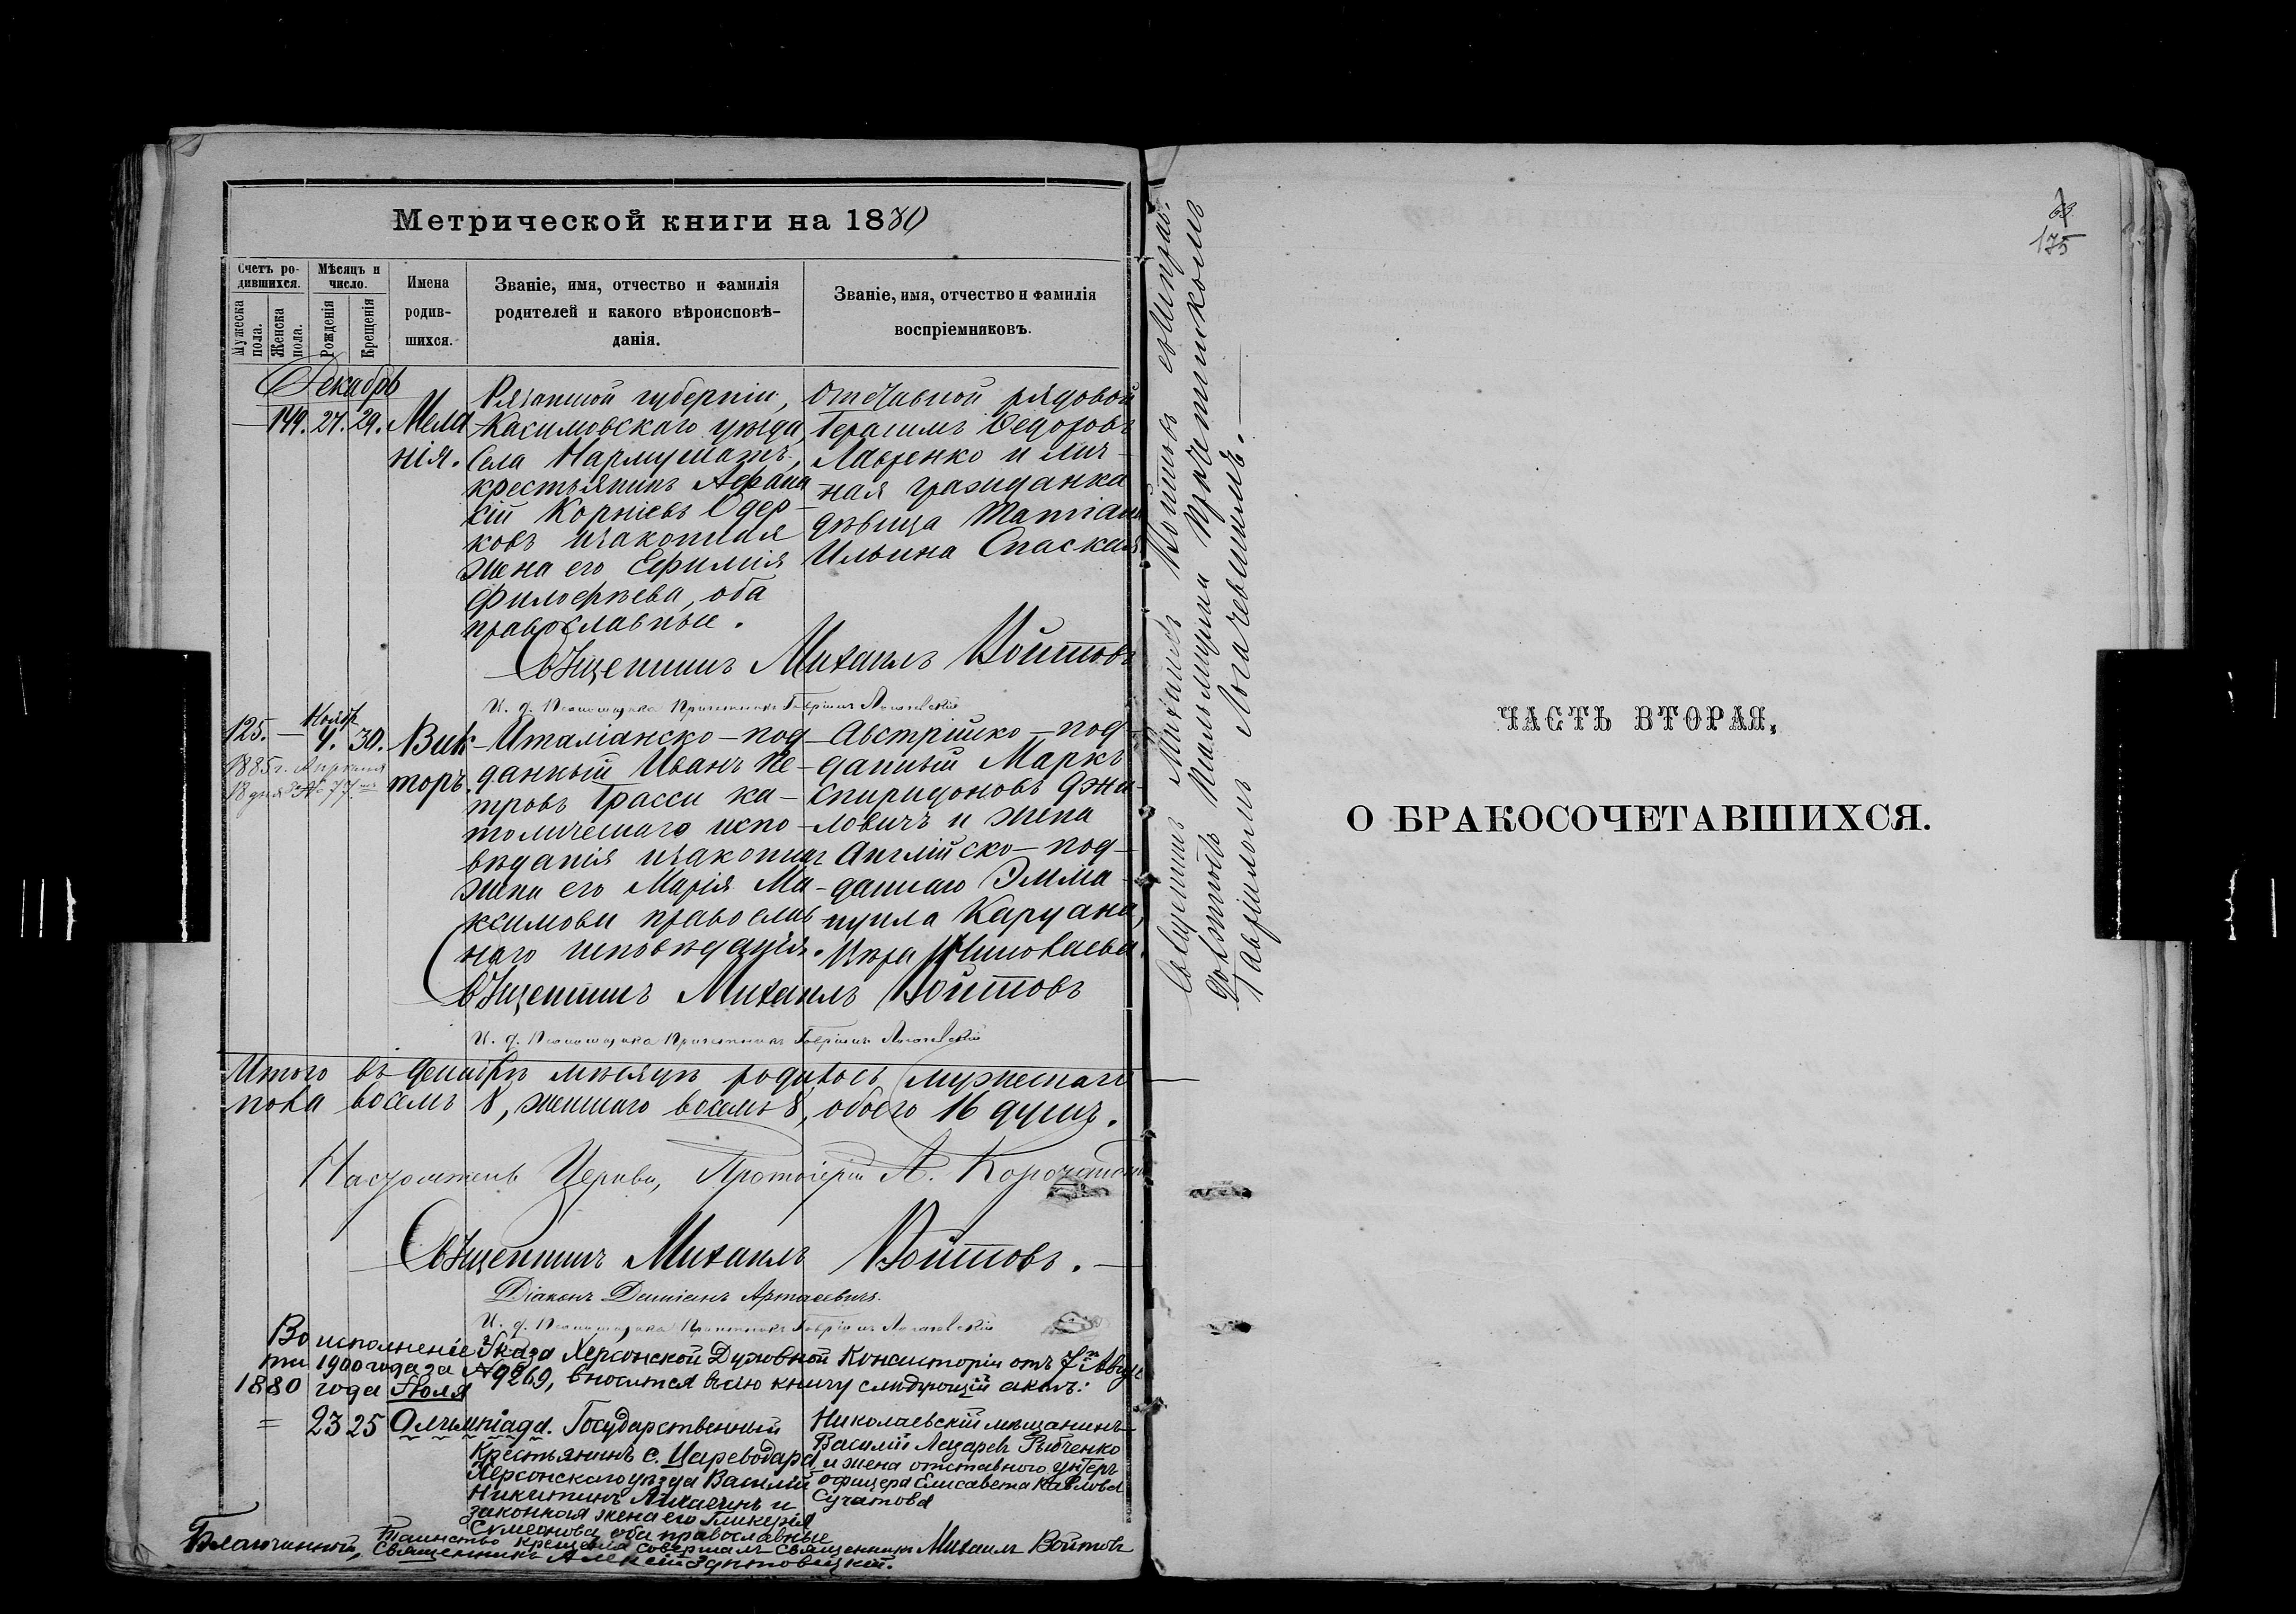 Метрической книги на 1880
Счетъ ро-
дившихся.
Мѣсяцъ и
число.
Мужеска
пола.
Женска
пола.
Рожденія
Крещенія
Имена
родив-
шихся.
Званіе, имя, отчество и фамилія
родителей и какого вѣроисповѣ-
данія.
Званіе, имя, отчество и фамилія
воспріемниковъ.
Декабрь
149. 27. 29. Мела
нія.
Рязанской губерніи,
Касимовскаго уѣзда,
Села Нармушать,
крестьянинъ Афана
сій Корніевъ Одер-
ковъ и законная
жена его Ефимія
Филофеева, оба
православные.
Отставной рядовой
Герасимъ Федоровъ
Лавренко и лич-
ная гражданка
дѣвица Татіана
Ильина Спаская
Священникъ Михаилъ Войтовъ
И. д. Псаломщика Причетникъ Гавріилъ
125. — Ноябр. 4. 30. Вик-
торъ.
1885 г. Апрѣля
18 дня № 77
Италіанско-под-
данный Иванъ Пе-
тровъ Грасси ка-
толическаго испо-
вѣданія и законная
жена его Марія Ма-
ксимова православ
наго исповѣданія.
Австрійско-под-
данный Маркъ
Спиридоновъ Джи-
ловичъ и жена
Англійско-под-
даннаго Эмма-
нуила Каруана,
Вѣра Николаева.
Священникъ Михаилъ Войтовъ
И. д. Псаломщика Причетникъ Гавріилъ
Итого въ декабрѣ мѣсяцѣ родилось мужескаго
пола восемь 8, женскаго восемь 8, обоего 16 душъ.
Настоятель Церкви, Протоіерей А.
Священникъ Михаилъ Войтовъ.
Діаконъ Даміанъ
И. д. Псаломщика Причетникъ Гавріилъ
Во исполненіе Указа Херсонской Духовной Консисторіи отъ 7го Авгус
та 1900 года за №9269, вносится въ сію книгу слѣдующій актъ:
1880 года Іюля
= 23 25 Олимпіада.
Государственный
Крестьянинъ с. Цареводара
Херсонскаго уѣзда Василій
Никитинъ и
законная жена его Гликерія
Симеонова, оба православные
Николаевскій мѣщанинъ
Василій Лазаревъ Рыбченко
и жена отставного унтеръ
офицера Елисавета Павлова
Сучатова
Таинство крещенія совершалъ Священникъ Михаилъ Войтовъ
Благочинный, Священникъ Алексій
Священникъ Михаилъ Войтовъ съ испр.
должность псаломщика причетникомъ
Гавріиломъ
63.
175
ЧАСТЬ ВТОРАЯ,
О БРАКОСОЧЕТАВШИХСЯ.